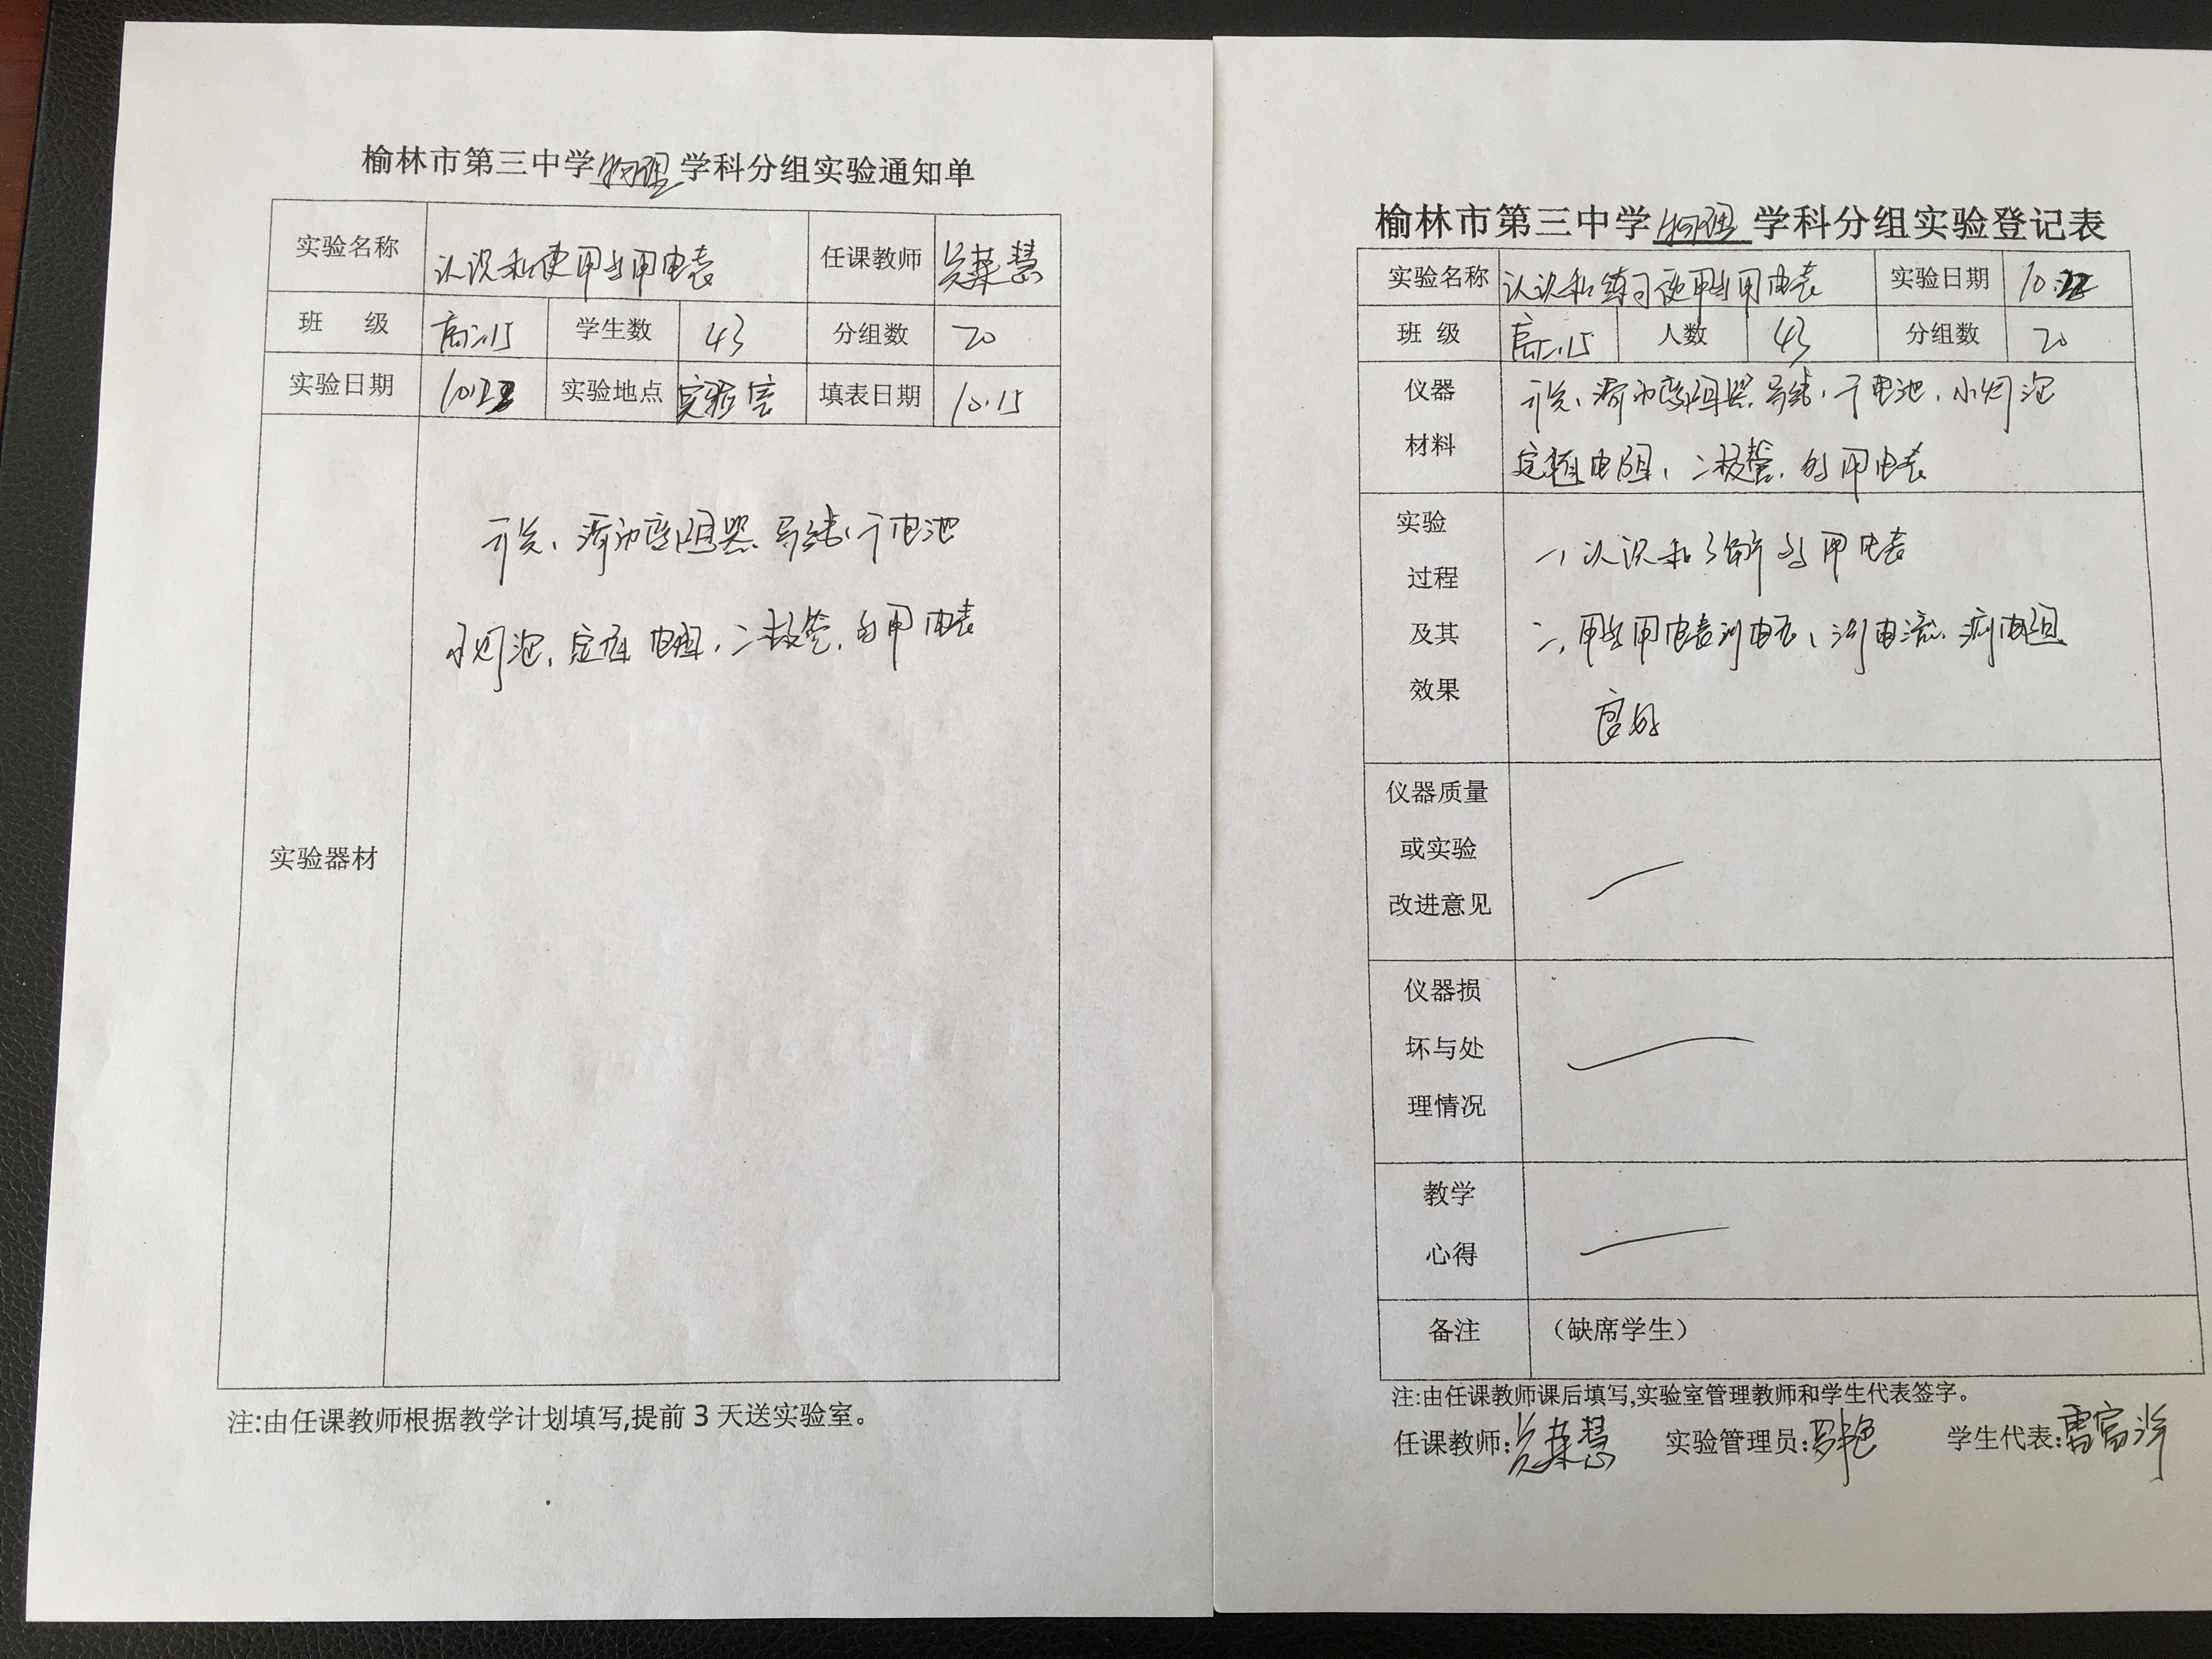 榆林市第三中学物理学科分组实验通知单
实验名称 认识和使用多用电表 任课教师
班 级 高二.15 学生数 43 分组数 20
实验日期 实验地点 实验室 填表日期 10.15
实验器材
开关、滑动变阻器、导线、干电池
小灯泡、定值电阻、二极管、多用电表
注:由任课教师根据教学计划填写,提前3天送实验室。
榆林市第三中学物理学科分组实验登记表
实验名称 认识和练习使用多用电表 实验日期
班 级 高二.15 人数 43 分组数 20
仪器 开关、滑动变阻器、导线、干电池、小灯泡
材料 定值电阻、二极管、多用电表
实验
过程 一、认识和了解多用电表
及其 二、用多用电表测电压、测电流、测电阻
效果 良好
仪器质量
或实验
改进意见
仪器损
坏与处
理情况
教学
心得
备注 （缺席学生）
注:由任课教师课后填写,实验室管理教师和学生代表签字。
任课教师: 实验管理员: 学生代表: